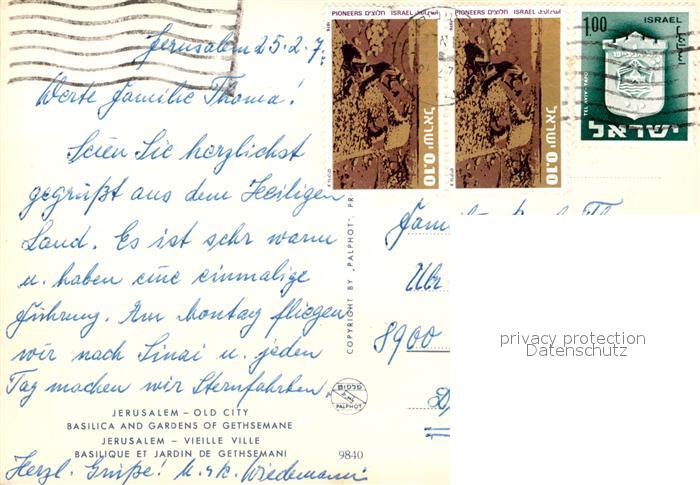 Jerusalem 25.2.7
Werte Familie Thoma!
Seien Sie herzlichst
gegrüßt aus dem Heiligen
Land. Es ist sehr warm
u. haben eine einmalige
Führung. Am Montag fliegen
wir nach Sinai u. jeden
Tag machen wir Sternfahrten
JERUSALEM – OLD CITY
BASILICA AND GARDENS OF GETHSEMANE
JERUSALEM – VIEILLE VILLE
BASILIQUE ET JARDIN DE GETHSEMANI
9840
Herzl. Grüße! M. u. K. Wiedemann
COPYRIGHT BY "PALPHOT" PR
פלפוט
PALPHOT
PIONEERS חלוצים ISRAEL
ישראל 0.10
PIONEERS חלוצים ISRAEL
ישראל 0.10
1.00 ISRAEL
TEL AVIV-YAFO
ישראל
8900
privacy protection
Datenschutz